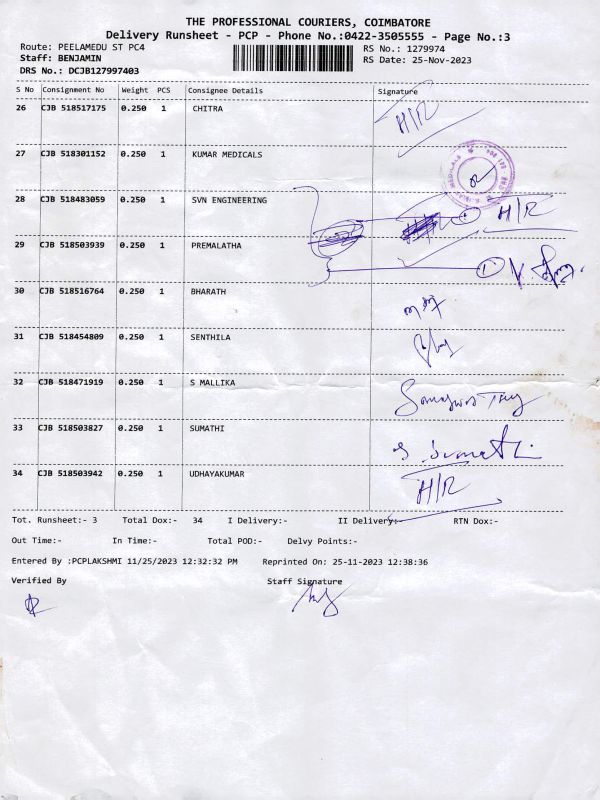 THE PROFESSIONAL COURIERS, COIMBATORE
Delivery Runsheet - PCP - Phone No.:0422-3505555 - Page No.:3
Route: PEELAMEDU ST PC4 RS No.: 1279974
Staff: BENJAMIN RS Date: 25-Nov-2023
DRS No.: DCJB127997403
S No Consignment No Weight PCS Consignee Details Signature
26 CJB 518517175 0.250 1 CHITRA H/R
27 CJB 518301152 0.250 1 KUMAR MEDICALS
28 CJB 518483059 0.250 1 SVN ENGINEERING H/R
29 CJB 518503939 0.250 1 PREMALATHA
30 CJB 518516764 0.250 1 BHARATH
31 CJB 518454809 0.250 1 SENTHILA
32 CJB 518471919 0.250 1 S MALLIKA
33 CJB 518503827 0.250 1 SUMATHI S. Sumathi
34 CJB 518503942 0.250 1 UDHAYAKUMAR H/R
Tot. Runsheet:- 3 Total Dox:- 34 I Delivery:- II Delivery:- RTN Dox:-
Out Time:- In Time:- Total POD:- Delvy Points:-
Entered By :PCPLAKSHMI 11/25/2023 12:32:32 PM Reprinted On: 25-11-2023 12:38:36
Verified By Staff Signature